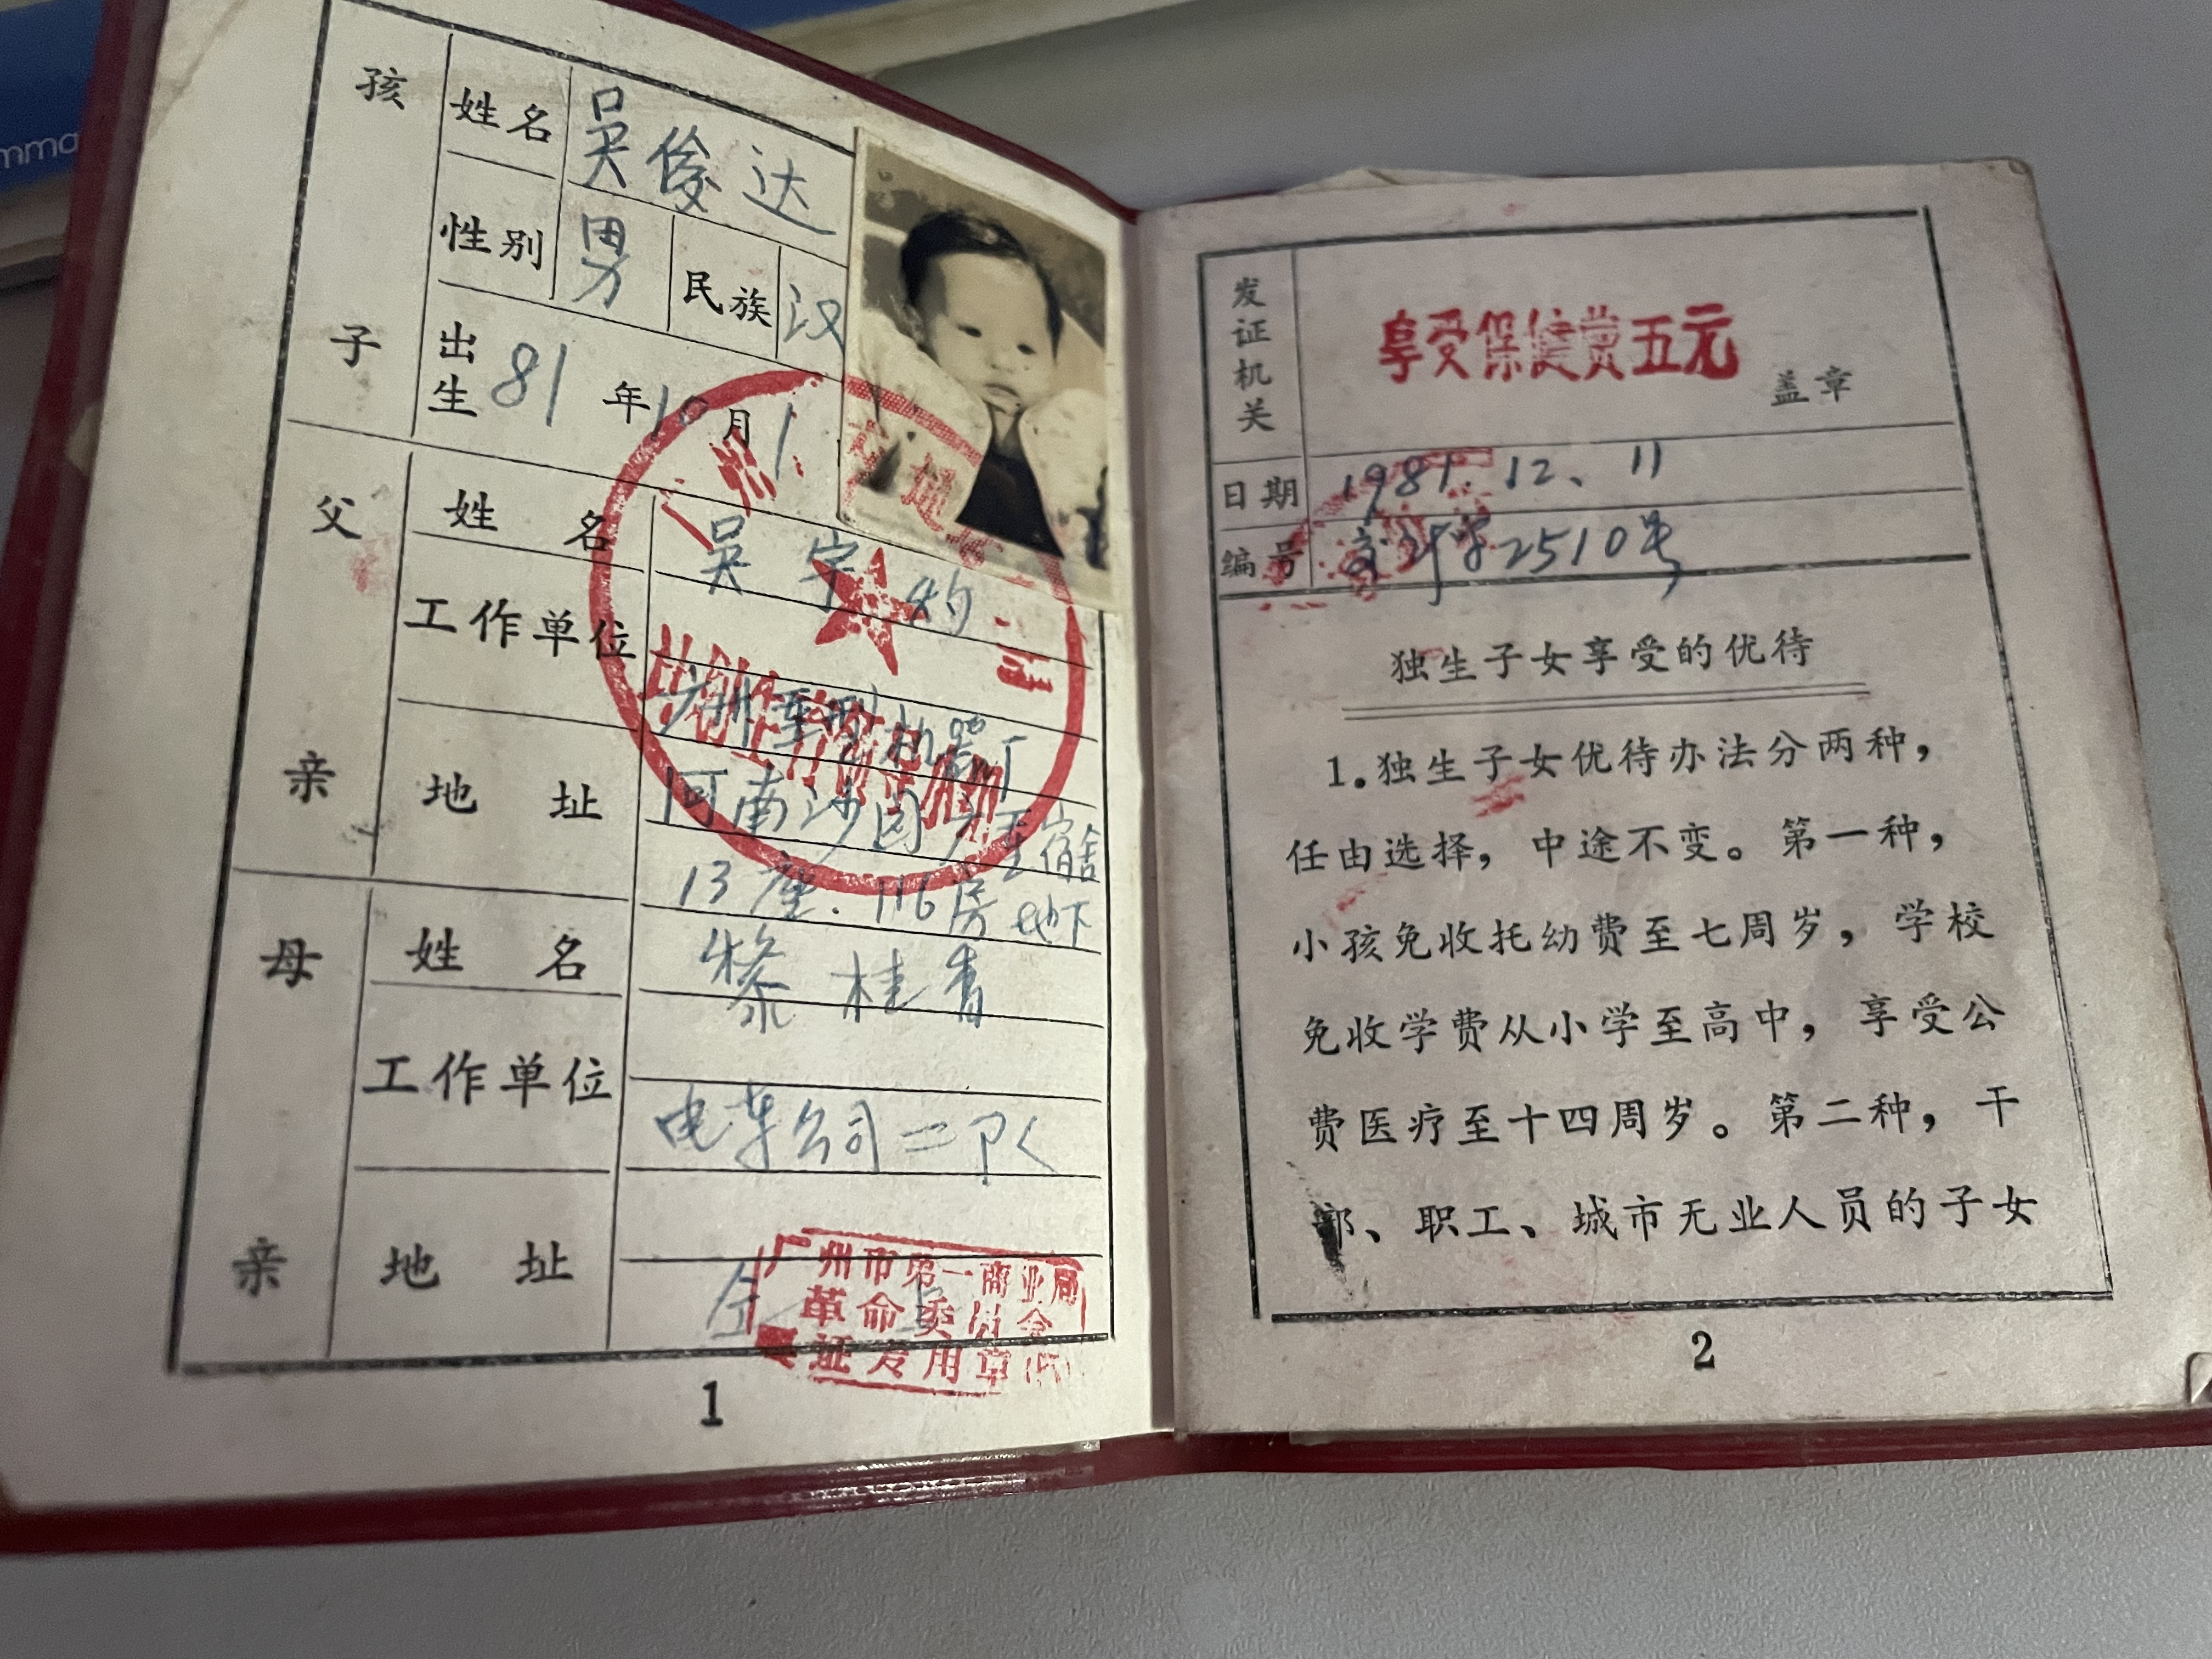 孩子
姓名 吴俊达
性别 男 民族 汉
出生 81年10月1
父亲
姓名 吴
工作单位 广州 机器厂
地址 河南沙园
13座.116房地下
母亲
姓名 张
桂
工作单位
公司二
地址 仝
广州市第一商业局
革命委员会
证 专用章
1
发证机关
享受保健费五元
盖章
日期 1981.12、11
编号 82510号
独生子女享受的优待
1.独生子女优待办法分两种,
任由选择,中途不变。第一种,
小孩免收托幼费至七周岁,学校
免收学费从小学至高中,享受公
费医疗至十四周岁。第二种,干
部、职工、城市无业人员的子女
2